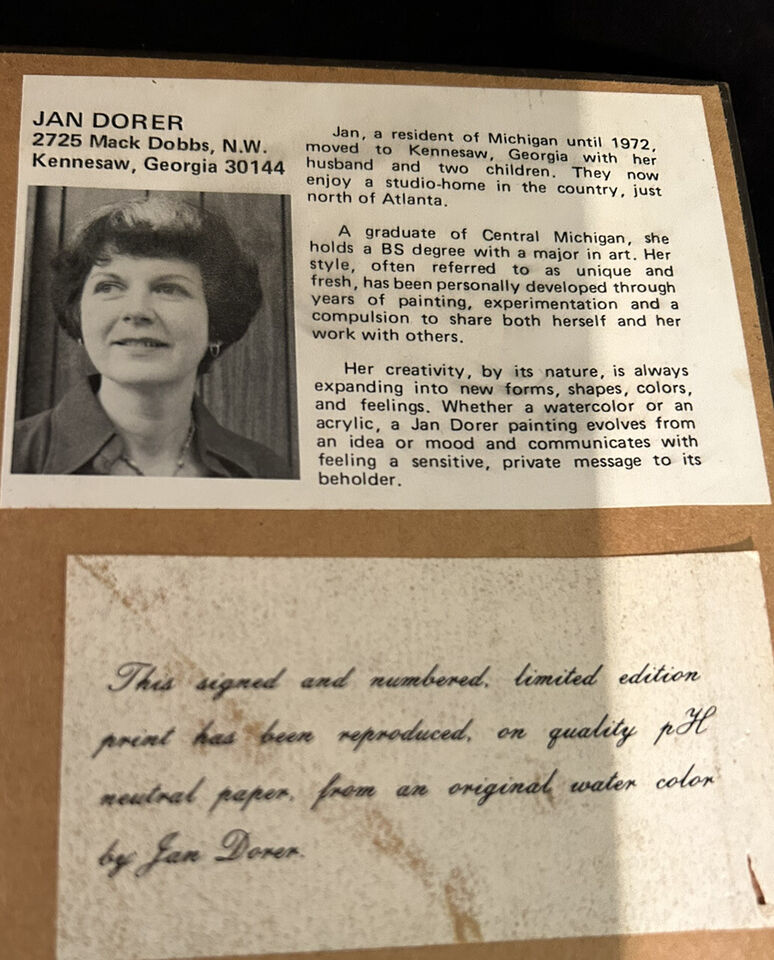 JAN DORER
2725 Mack Dobbs, N.W.
Kennesaw, Georgia 30144
Jan, a resident of Michigan until 1972,
moved to Kennesaw, Georgia with her
husband and two children. They now
enjoy a studio-home in the country, just
north of Atlanta.
A graduate of Central Michigan, she
holds a BS degree with a major in art. Her
style, often referred to as unique and
fresh, has been personally developed through
years of painting, experimentation and a
compulsion to share both herself and her
work with others.
Her creativity, by its nature, is always
expanding into new forms, shapes, colors,
and feelings. Whether a watercolor or an
acrylic, a Jan Dorer painting evolves from
an idea or mood and communicates with
feeling a sensitive, private message to its
beholder.
This signed and numbered, limited edition
print has been reproduced, on quality pH
neutral paper, from an original water color
by Jan Dorer.